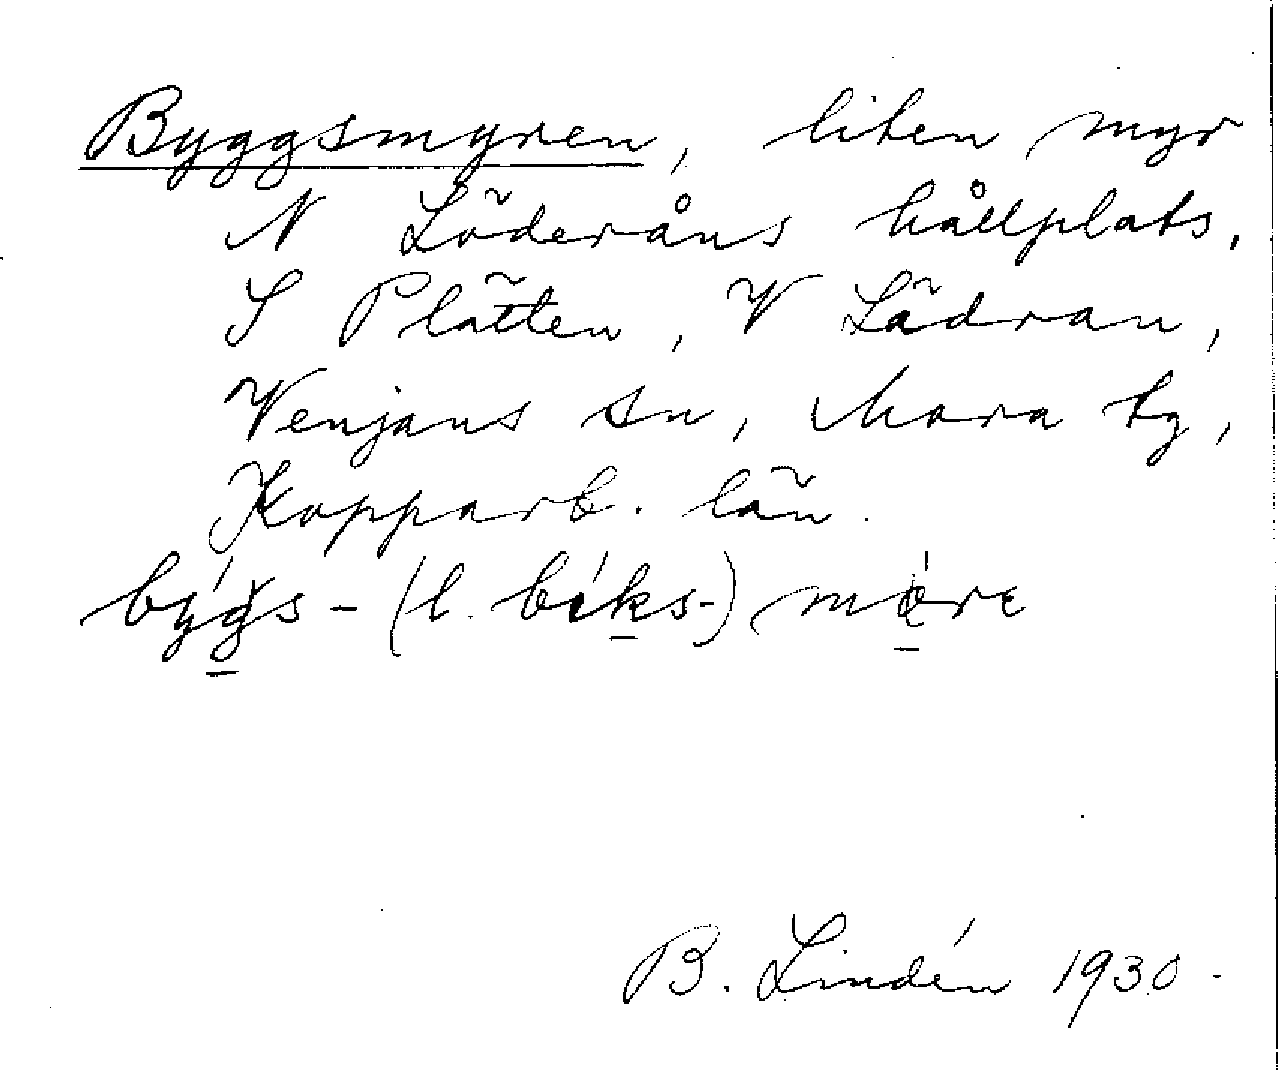 Byggsmyren, liten myr
N Löderåns hållplats,
S Plätten, V Lädran,
Venjans sn, Mora tg,
Kopparb. län.
býgs- (l. béks-) möre
B. Lindén 1930.